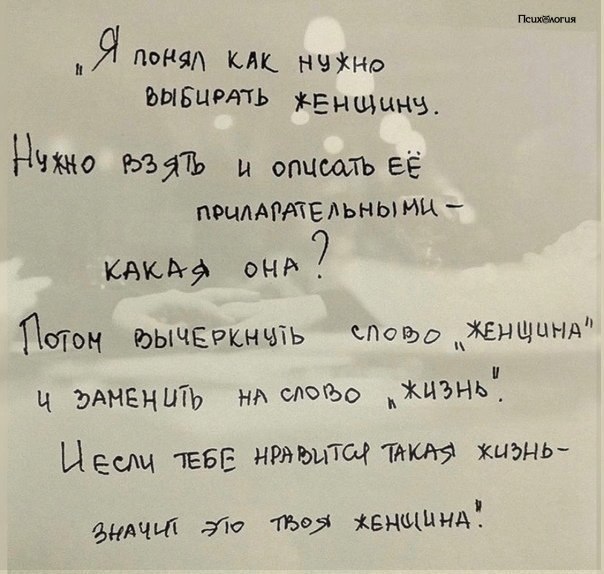 Псих☺логия
„Я понял как нужно
выбирать женщину.
Нужно взять и описать её
приларательными –
какая она?
Потом вычеркнуть слово „женщина"
и заменить на слово „жизнь".
И если тебе нравится такая жизнь–
значит это твоя женщина".